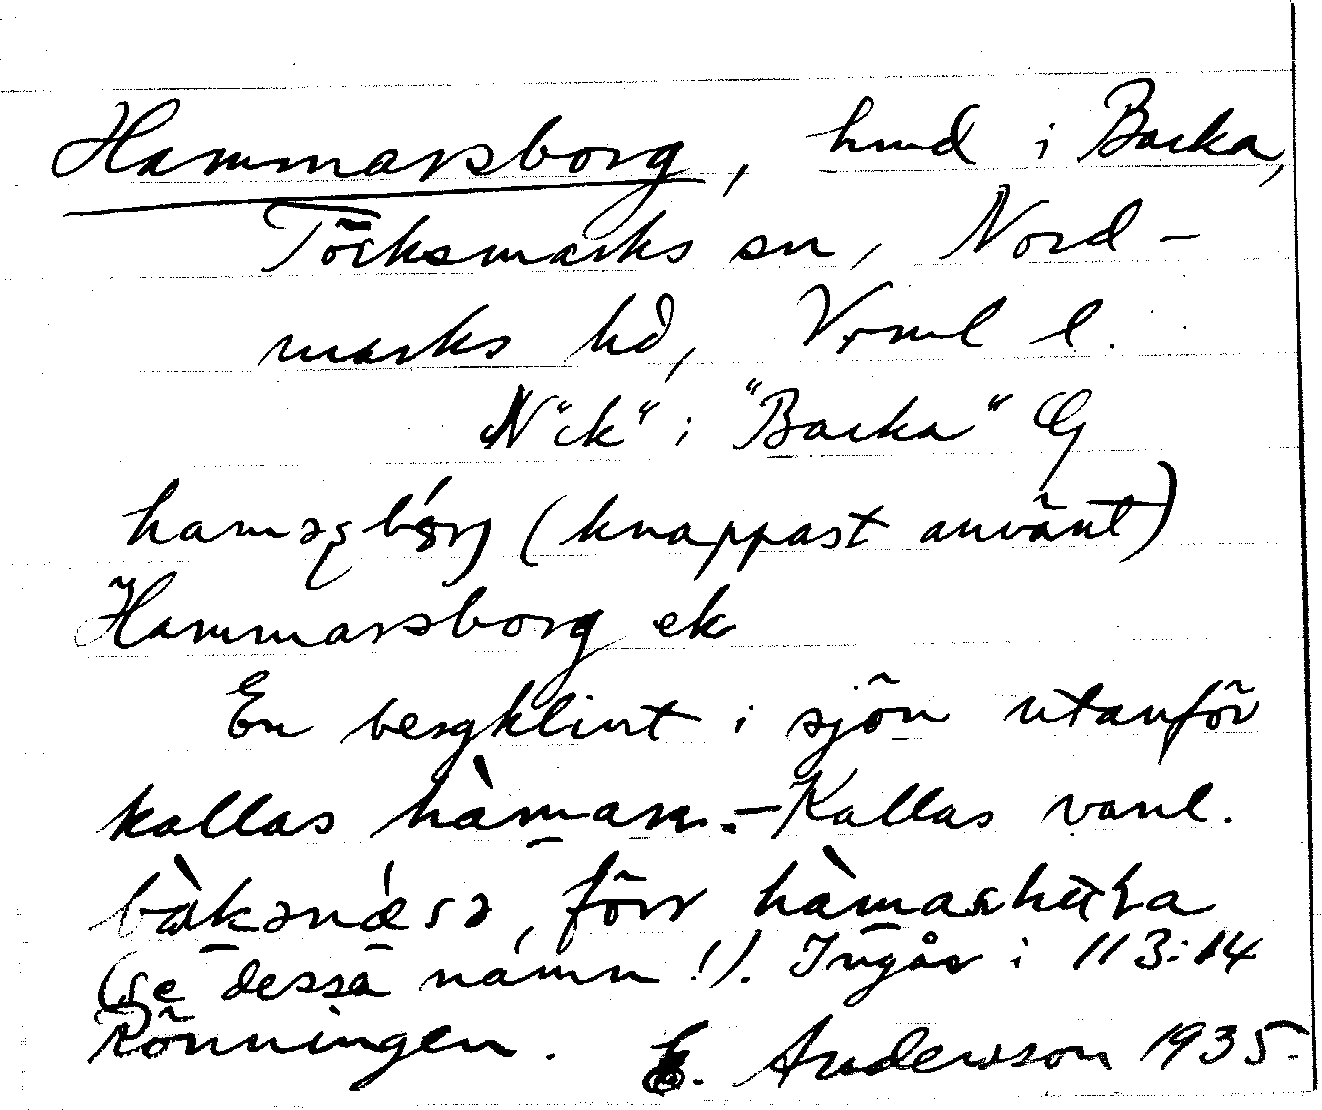 Hammarsborg, hmd i Backa,
Töcksmarks sn, Nord-
marks hd, Vrml l.
N"ck" i "Backa" G
(knappast använt)
Hammarsborg ek
En bergklint i sjön utanför
kallas hàmarn. - Kallas vanl.
förr
(se dessa namn!). Ingår i 113:14
Rönningen. E. Anderson 1935.